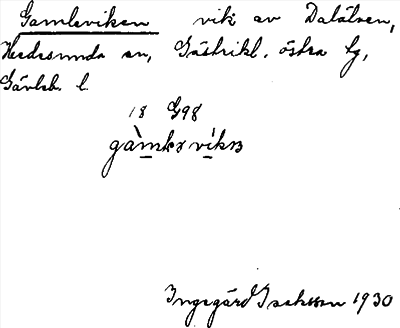 Gamleviken vik av Dalälven,
Hedesunda sn, Gästrikl. östra tg,
Gävleb. l.
18 G98
Ingegärd Isaksson 1930